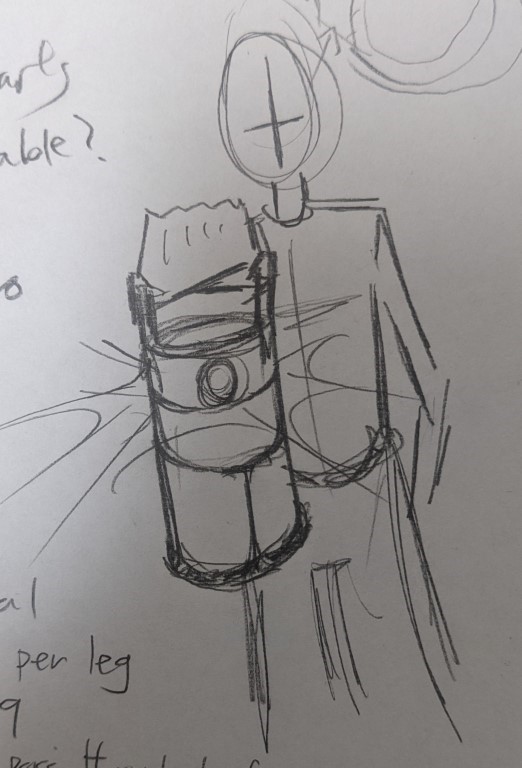 arls
able?
o
al
per leg
g